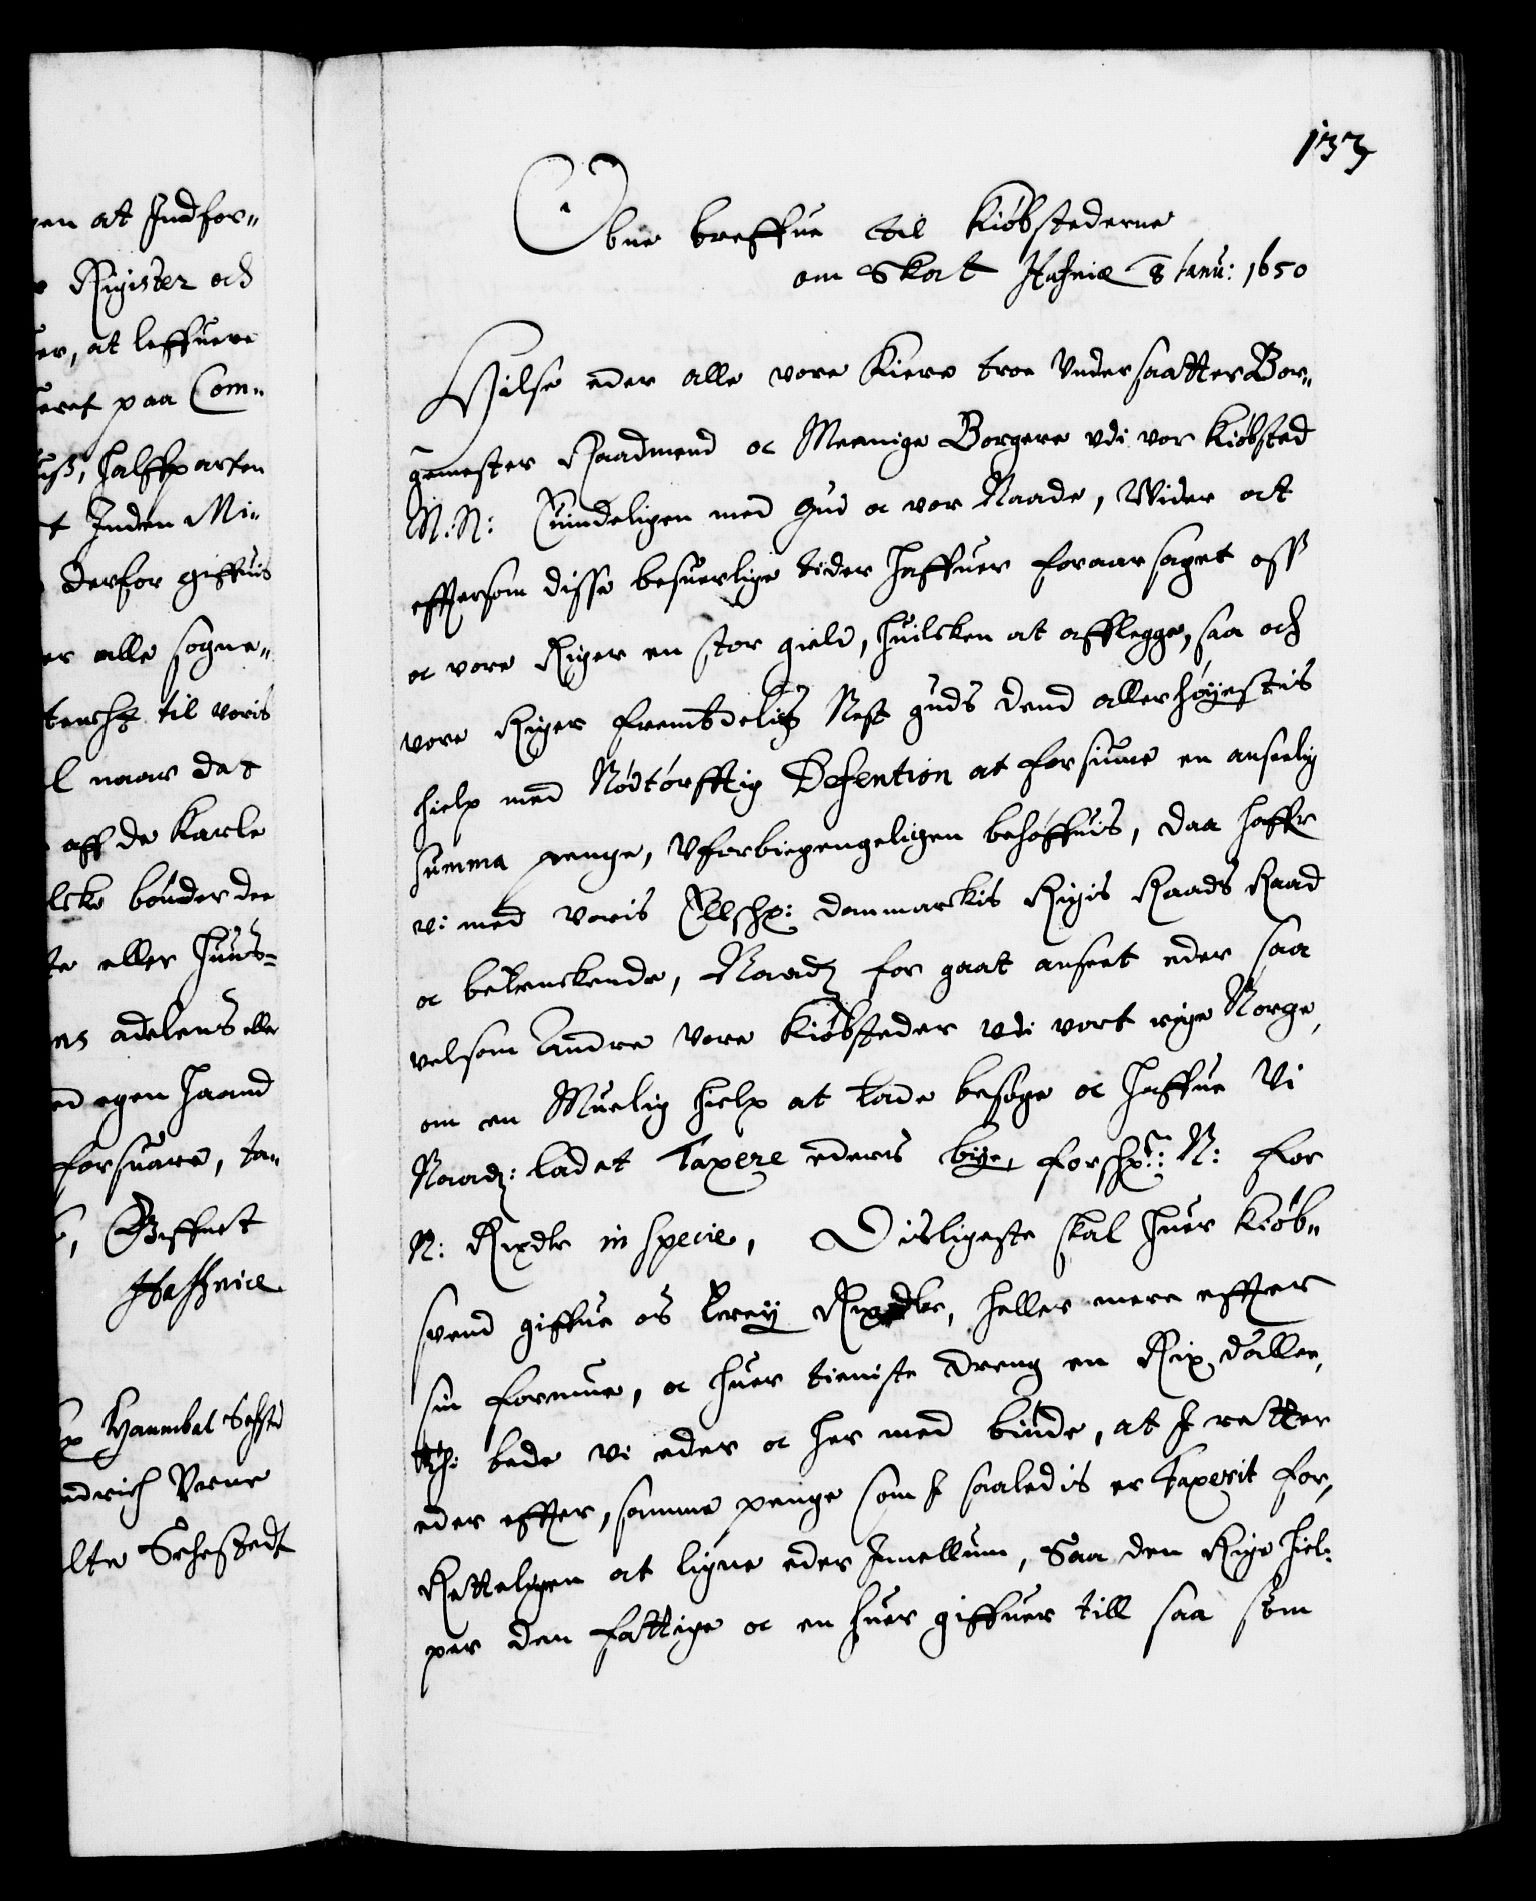 gen at Indfor„
Rigister och
er, at leffuere
eret paa Com„
uß, halffparten
t Inden Mi„
derfor giffuis
er alle sogne„
til voris
l naar det
aff de Karle
lske bønder der
te eller huus„
ns adelens eller
ed egen haand
forsuare, ta„
Giffuet
Haffniæ
Hannibal Sehsted
endrich
lte Sehestedt
133
Obne breffue til Kiøbstederne
om Skat Hafniæ 8 Janu: 1650
Hilse eder alle vore Kiere troe Vndersaatter Bor„
gemester Raadmend oc Meenige Borgere vdi vor Kiøbsted
N:N: Kiendeligen med Gud oc vor Naade, Wider at
effterson disse besuerlige tider haffuer foraarsaget oss
oc vore Riger en stor gield, huilcken at afflegge, saa och
vore Riger frembdelis Nest guds dend allerhøyestis
hielp med Nødtørfftig Defention at forsiune en anseelig
summa penge, Vforbiegengeligen behøffuis, daa haffr
vi med voris Ellshe: danmarckis Rigis Raads Raad
oc betenckende, Naad: for gaat anseet eder saa
velsom Andre vore Kiøbsteder vdi vort rige Norge,
om en Muelig hielp at lade besøge oc haffue Vi
Naad: ladet Taxere ederis bye, forshe: N: for
N: Rixdlr in specie, Disligeste skal huer Kiøb„
suend giffue os trey Rixdlr, heller mere effter
sin formue, oc huer tieniste dreng en Rix daller,
Thi bede vi eder oc her med biude, at I retter
eder effter, samme penge som I saaledis er Taxerit for,
Retteligen at ligne eder Imellum, Saa den Rige hiel„
per den fattige oc en huer giffuer till saa som